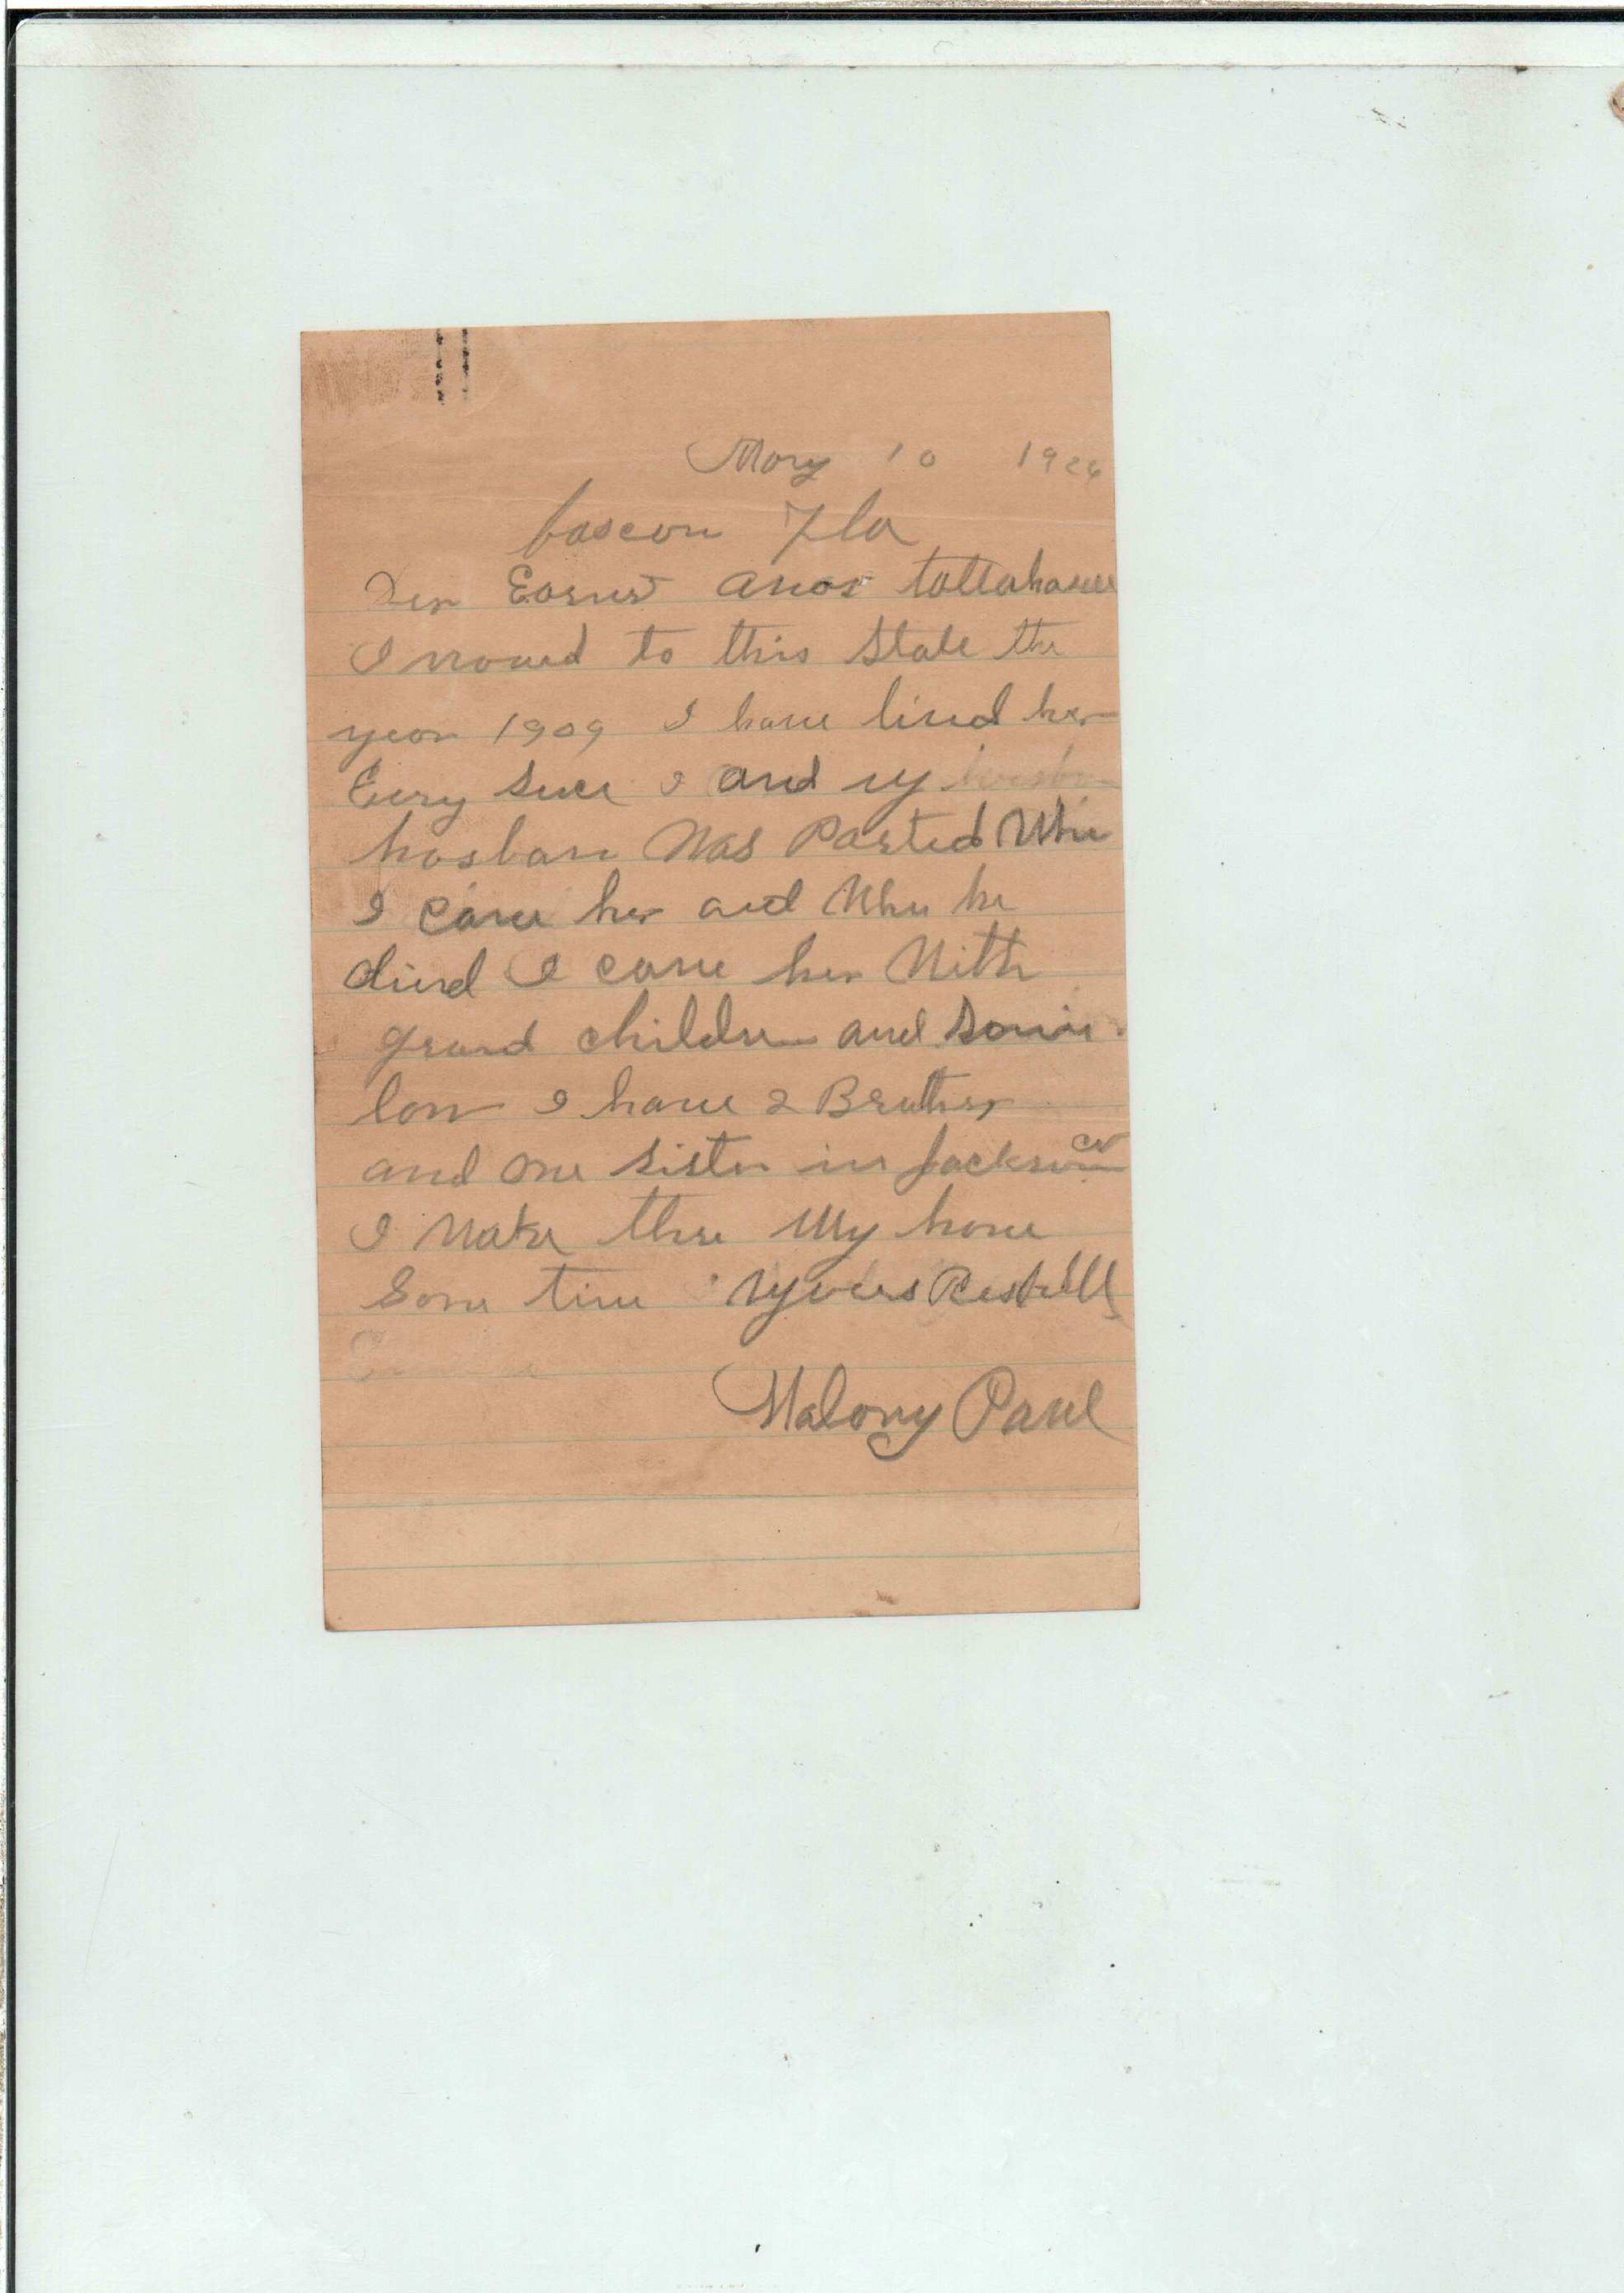 May 10 1926
bascom Fla
Der Earnest Amos tallahassee
I moued to this State the
year 1909 I haue liued her
Eury Since I and my
hosban Was Parted Whe
I came her and When he
died I came her With
grand children and sonin
low I haue 2 Brother
and one sister in Jackson co
I Make thre My home
Some time yours Resfull
Malony Paul